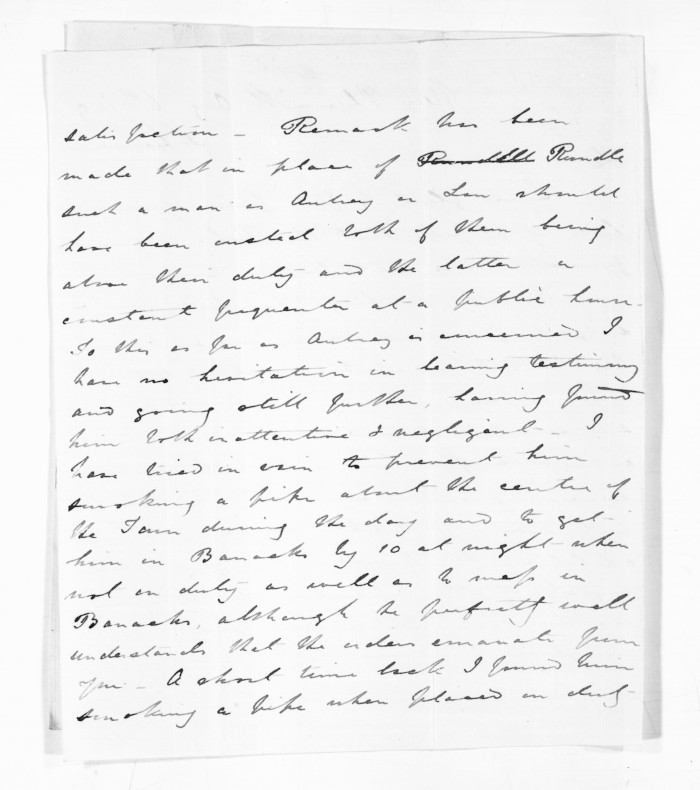 satisfaction - Remark has been
made that in place of Rundle
such a man as Aubrey or should
have been ousted both of them being
above their duty and the latter a
constant frequenter at a public house -
To this as far as Aubrey is concerned I
have no hesitation in bearing testimony
and going still further, having found
him both inattentive & negligent - I
have tried in vain to prevent him
smoking a pipe about the centre of
the Town during the day and to get
him in Barracks by 10 at night when
not on duty as well as to mess in
Barracks, although he perfectly well
understands that the orders emanate from
you - A short time back I found him
smoking a pipe when placed on duty